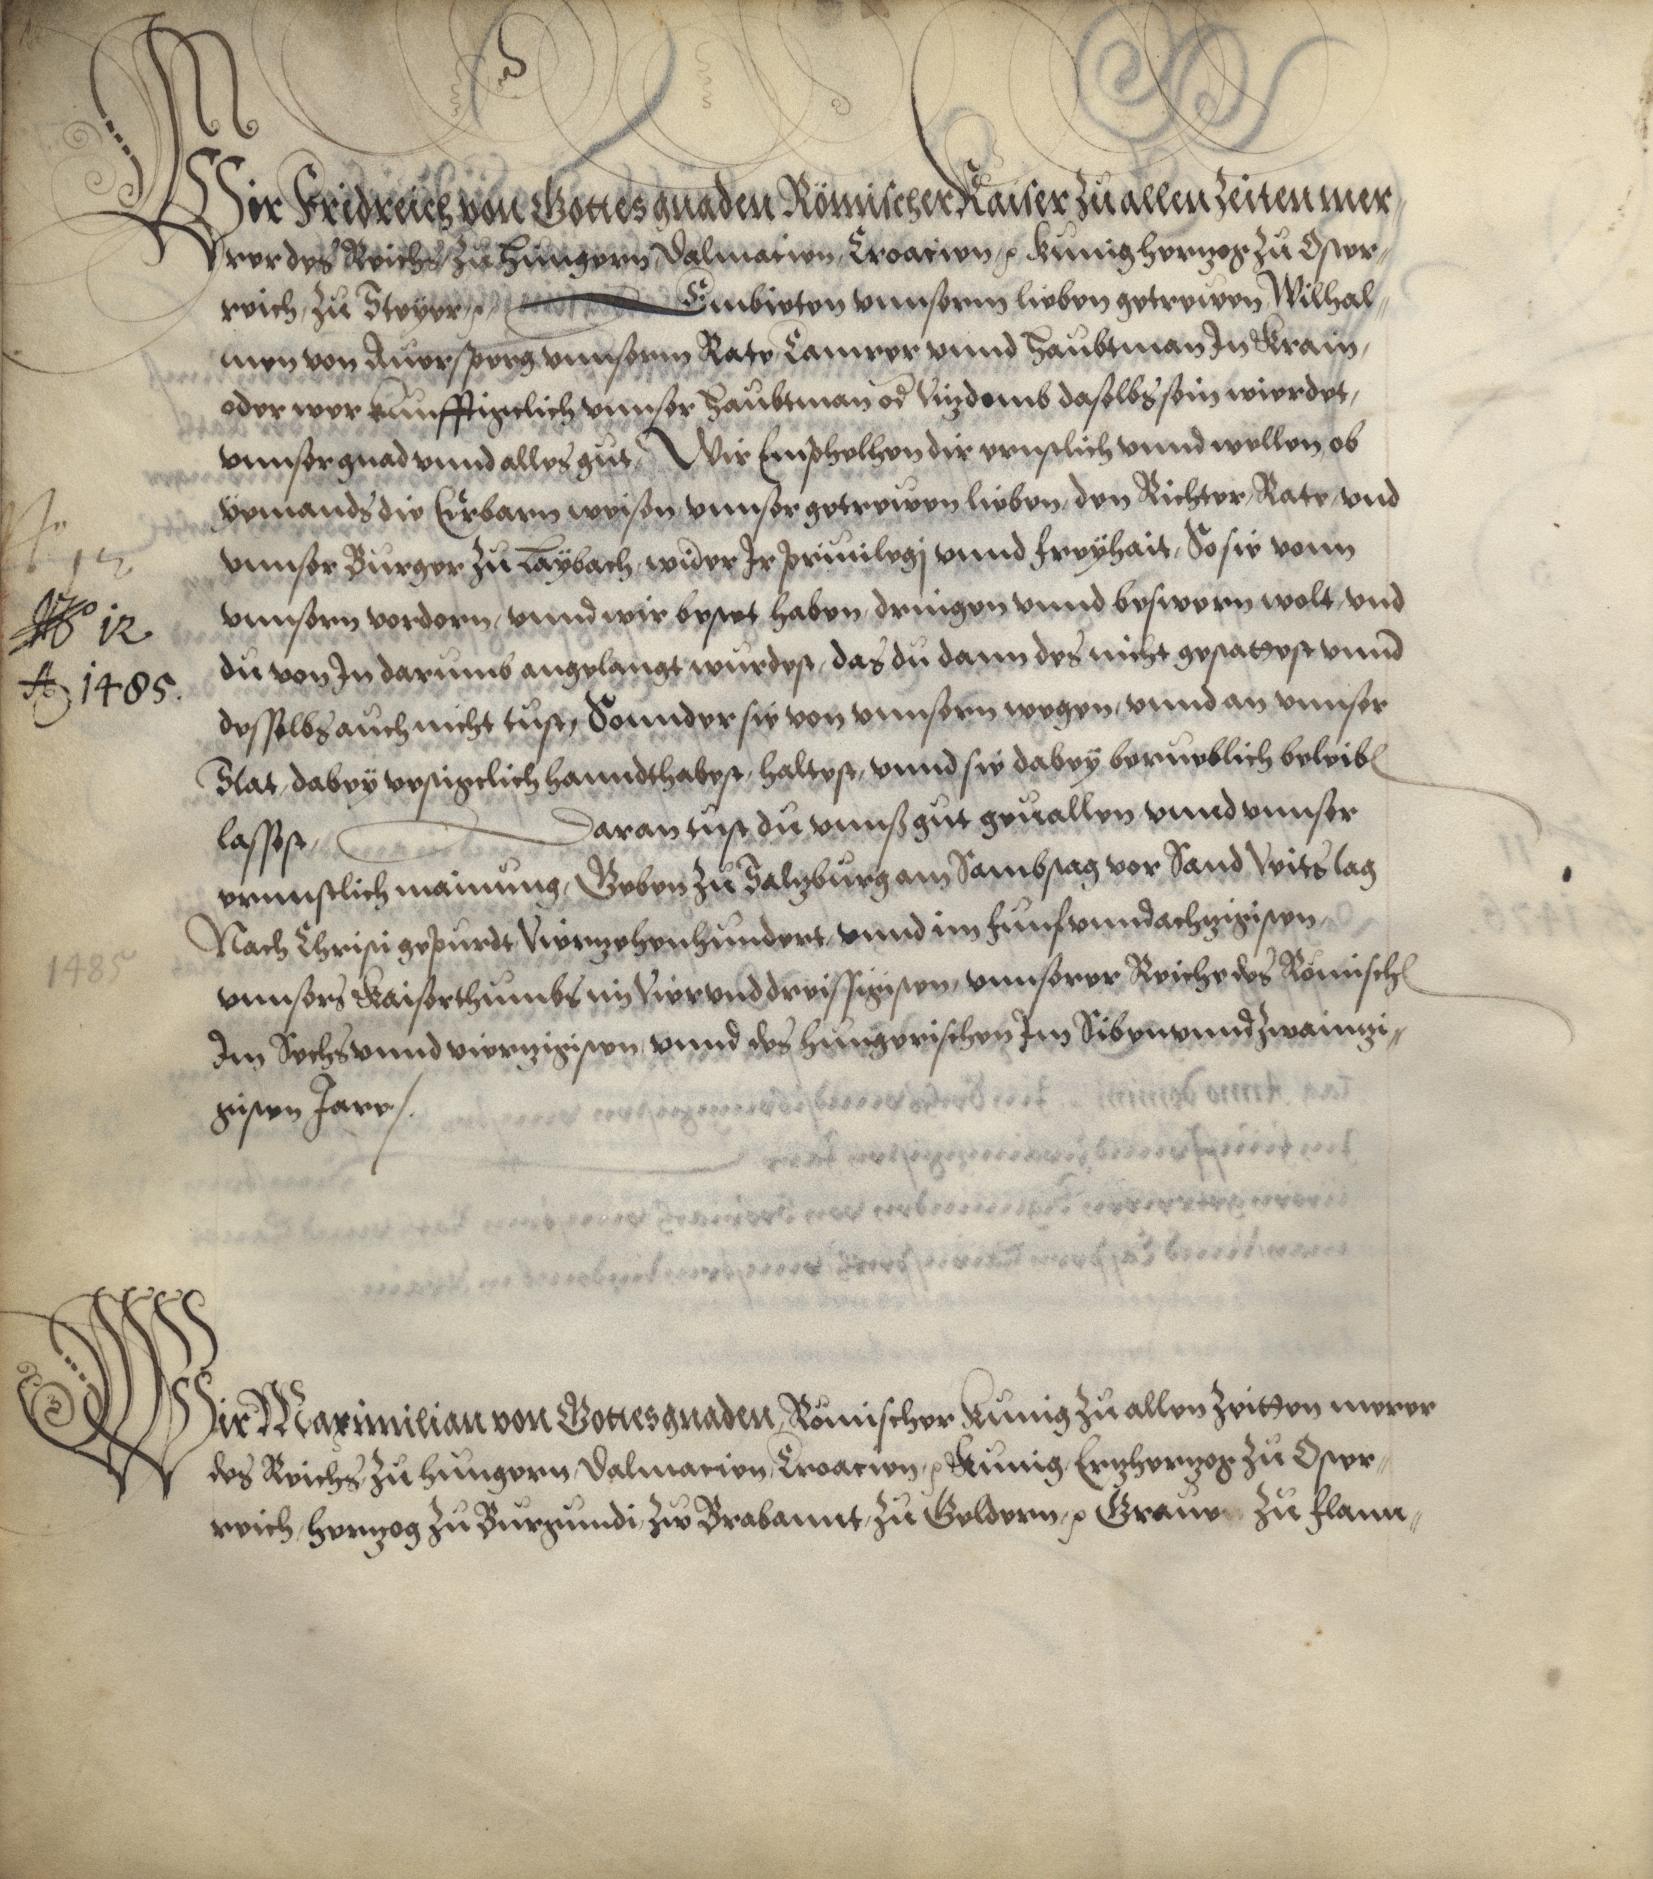 Wir Fridreich von Gottes gnaden Römischer Kaiser zu allen Zeiten mer„
rer des Reichs, zu Hungern, Dalmatien, Croatien, ꝛc Kunig herzog zu Oster„
reich, zu Steyer, ꝛc Embieten unnserm lieben getrewen Wilhal„
men von Auersperg unnserm Rate, Camrer unnd Haubtman In Krain,
oder wer kunfftigclich unnser Haubtman od Vizdomb daselbs sein wierdet,
unnser gnad unnd alles gut, Wir Emphelhen dir ernstlich unnd wellen ob
yemands die Erbarn weisen unnser getrewen lieben, den Richter, Rate, und
unnser Burger zu Laybach, wider Ir privilegj unnd freyhait, So sie vonn
unnsern vordern, unnd wir bestet haben, dringen unnd beswern wolt, und
du von In darumb angelangt wurdest, das du dann des nicht gestattest unnd
desselbs auch nicht tust, Sonnder sie von unnsern wegen, unnd an unnser
Stat, dabey vestigclich hanndthabest, haltest, unnd sie dabey berueblich beleiben
lassest, Daran tust du unns gut geuallen unnd unnser
ernnstlich mainung, Geben zu Salzburg am Sambstag vor Sand Veits tag
Nach Christi gepurdt Vierzehenhundert, unnd im funfunndachzigisten,
unnsers Kaiserthumbs im Vierunddreissigisten, unnserer Reiche des Römischen
Im Sechsunndvierzigisten, unnd des Hungerischen Im Sibenunndzwainzi„
gisten Jare/.
No 12
Ao 1485.
1485
Wir Maximilian von Gottes gnaden, Römischer Kunig zu allen Zeitten merer
des Reichs, zu Hungern, Dalmatien, Croatien, ꝛc Kunig, Erzherzog zu Oster„
reich, Herzog zu Burgundi, zw Brabannt, zu Geldern, ꝛc Graue zu Flann„